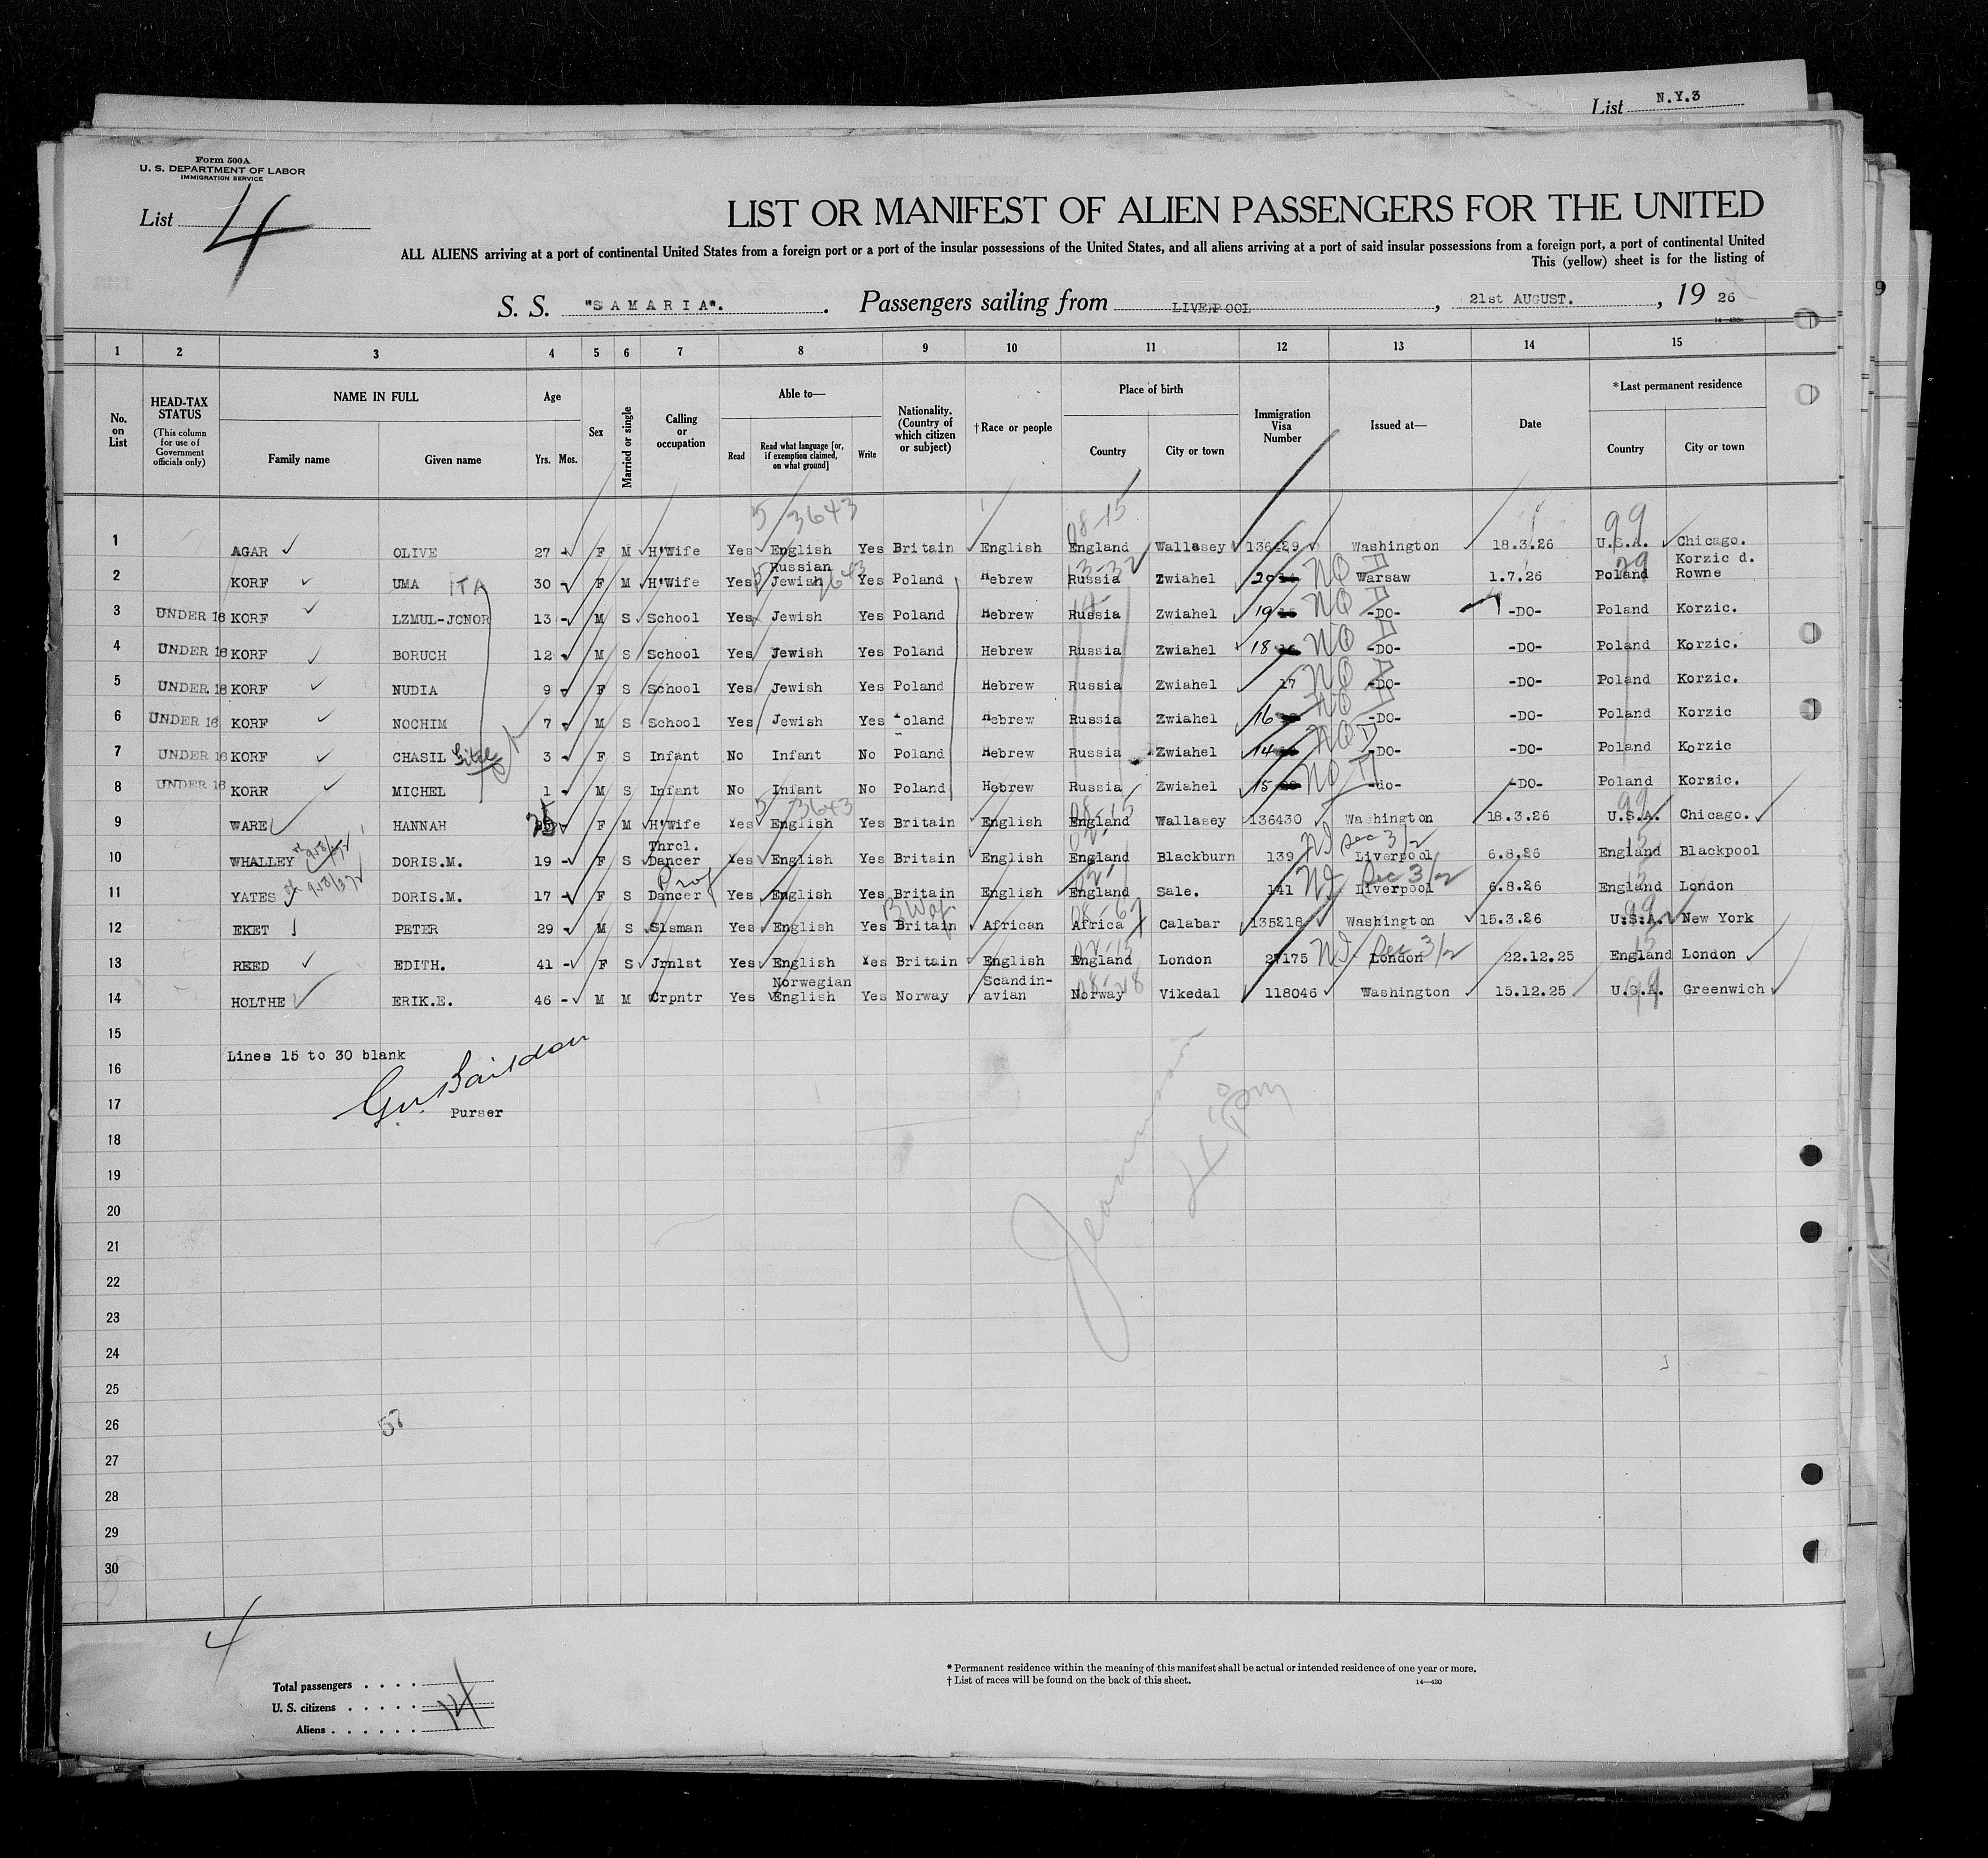 List N.Y.3
Form 500A
U. S. DEPARTMENT OF LABOR
IMMIGRATION SERVICE
List 4
LIST OR MANIFEST OF ALIEN PASSENGERS FOR THE UNITED
ALL ALIENS arriving at a port of continental United States from a foreign port or a port of the insular possessions of the United States, and all aliens arriving at a port of said insular possessions from a foreign port, a port of continental United
This (yellow) sheet is for the listing of
S. S. "SAMARIA". Passengers sailing from LIVERPOOL, 21st AUGUST., 19 26
1 2 3 4 5 6 7 8 9 10 11 12 13 14 15
No. on List
HEAD-TAX STATUS (This column for use of Government officials only)
NAME IN FULL Family name Given name
Age Yrs. Mos.
Sex
Married or single
Calling or occupation
Able to— Read Read what language [or, if exemption claimed, on what ground] Write
Nationality. (Country of which citizen or subject)
† Race or people
Place of birth Country City or town
Immigration Visa Number
Issued at—
Date
*Last permanent residence Country City or town
5 3643 08-15 99
1 AGAR OLIVE 27 - F M H'Wife Yes English Yes Britain English England Wallasey 136429 Washington 18.3.26 U.S.A. Chicago.
2 KORF UMA ITA 30 - F M H'Wife Yes Russian Jewish Yes Poland Hebrew Russia Zwiahel 20 NQ Warsaw 1.7.26 Poland Korzic d. Rowne
3 UNDER 16 KORF LZMUL-JONOR 13 - M S School Yes Jewish Yes Poland Hebrew Russia Zwiahel 19 NQ -DO- -DO- Poland Korzic.
4 UNDER 16 KORF BORUCH 12 - M S School Yes Jewish Yes Poland Hebrew Russia Zwiahel 18 NQ -DO- -DO- Poland Korzic.
5 UNDER 16 KORF NUDIA 9 - F S School Yes Jewish Yes Poland Hebrew Russia Zwiahel 17 NQ -DO- -DO- Poland Korzic.
6 UNDER 16 KORF NOCHIM 7 - M S School Yes Jewish Yes Poland Hebrew Russia Zwiahel 16 NQ -DO- -DO- Poland Korzic
7 UNDER 16 KORF CHASIL 3 - F S Infant No Infant No Poland Hebrew Russia Zwiahel 14 NQ -DO- -DO- Poland Korzic
8 UNDER 16 KORR MICHEL 1 M S Infant No Infant No Poland Hebrew Russia Zwiahel 15 NQ -do- -DO- Poland Korzic.
5 3643 08-15 99
9 WARE HANNAH F M H'Wife Yes English Yes Britain English England Wallasey 136430 Washington 18.3.26 U.S.A. Chicago.
10 WHALLEY DORIS.M. 19 - F S Thrcl. Dancer Yes English Yes Britain English England Blackburn 139 Sec 3/2 Liverpool 6.8.26 England Blackpool
11 YATES DORIS.M. 17 - F S Prof Dancer Yes English Yes Britain English England Sale. 141 Sec 3/2 Liverpool 6.8.26 England London
12 EKET PETER 29 - M S Slsman Yes English Yes Britain African Africa Calabar 135218 Washington 15.3.26 U.S.A. New York
13 REED EDITH. 41 - F S Jrnlst Yes English Yes Britain English England London 27175 Sec 3/2 London 22.12.25 England London
14 HOLTHE ERIK.E. 46 - M M Crpntr Yes Norwegian English Yes Norway Scandin-avian Norway Vikedal 118046 Washington 15.12.25 U.S.A. Greenwich
15
Lines 15 to 30 blank
16
17
Purser
18
19
20
21
22
23
24
25
26
57
27
28
29
30
4
Total passengers
U. S. citizens
Aliens
14
* Permanent residence within the meaning of this manifest shall be actual or intended residence of one year or more.
† List of races will be found on the back of this sheet.
14—430